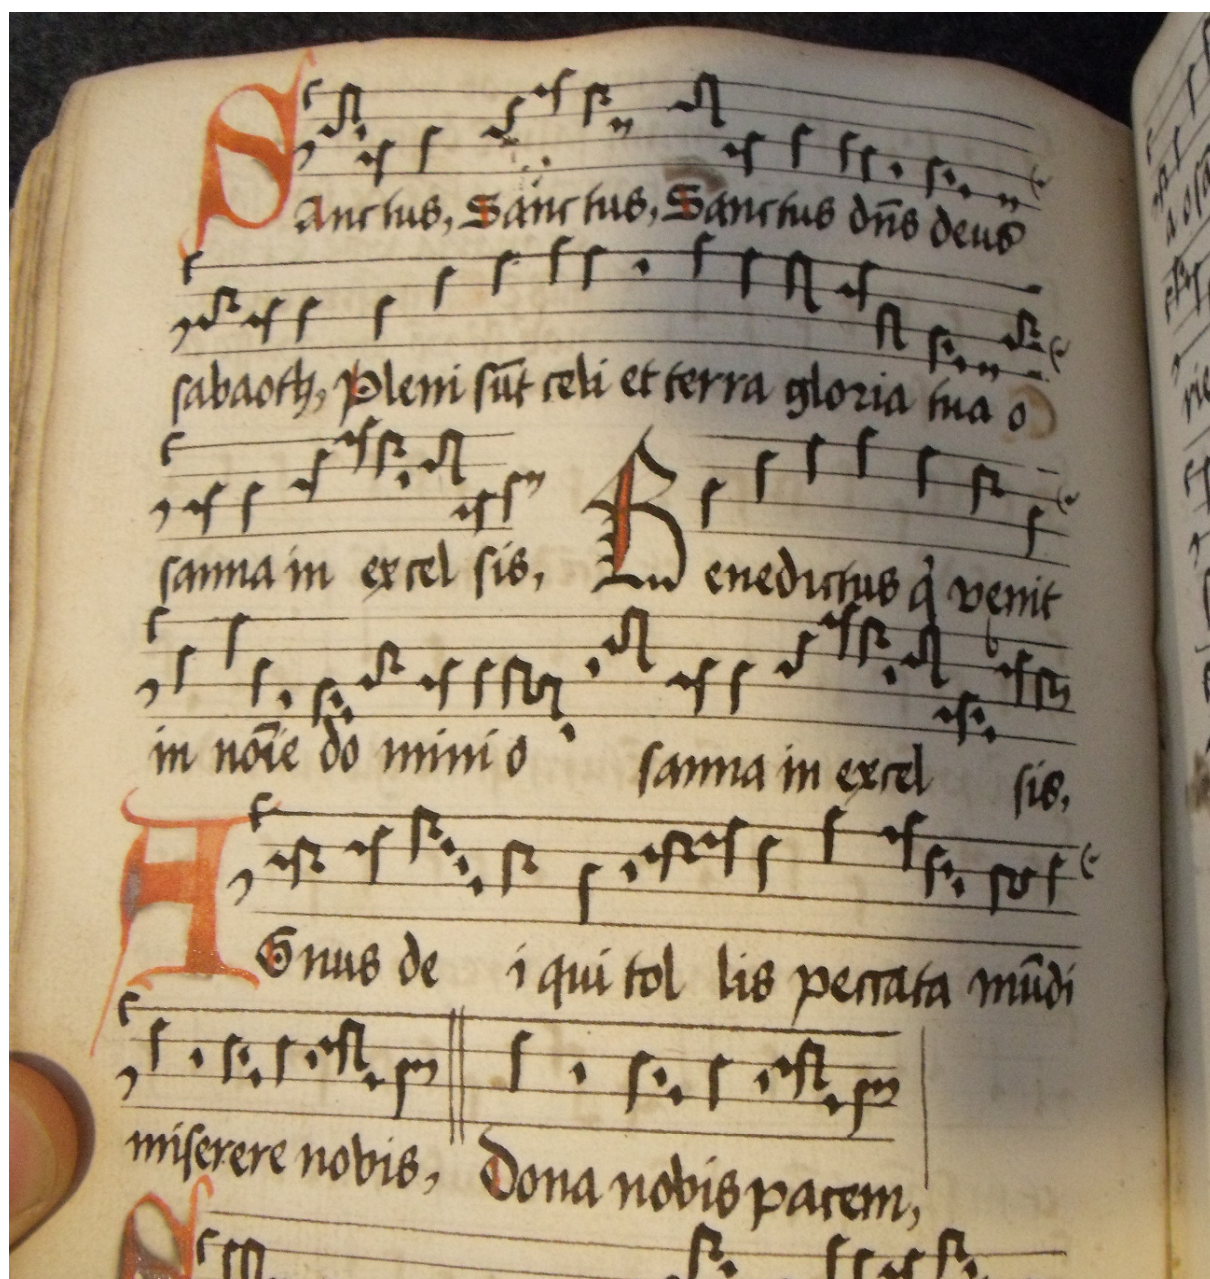 Sanctus, Sanctus, Sanctus dn̄s deus
sabaoth, Pleni sūt celi et terra gloria tua o
sanna in excel sis, Benedictus q̇ venit
in noīe do mini o sanna in excel sis,
AGnus de i qui tol lis peccata mūdi
miserere nobis, Dona nobis pacem,